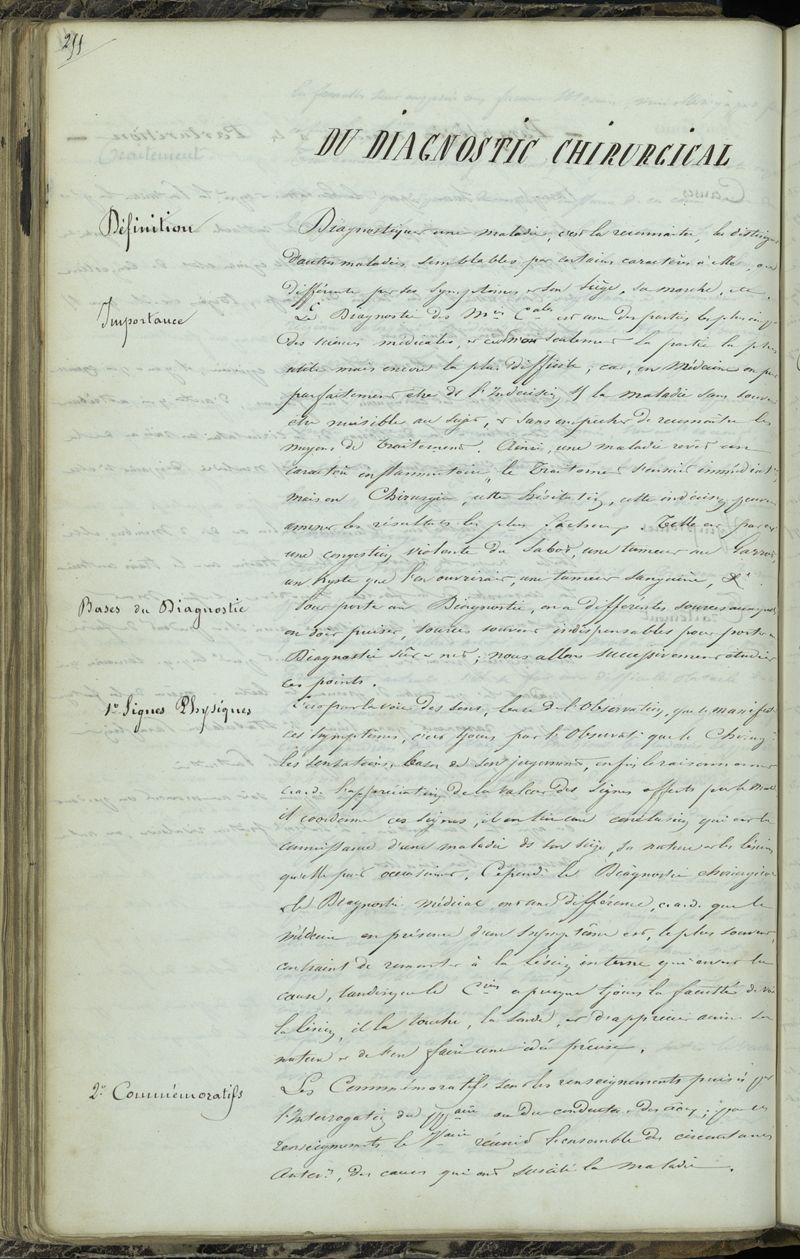 DU DIAGNOSTIC CHIRURGICAL
Définition
Diagnostiquer une maladie, c'est la reconnaitre, la distinguer
d'autres maladies semblables par certains caractères
différente par ses symptomes et son siège, sa marche, etc.
Importance
Le Diagnostic des est une des parties les plus
des sciences médicales, et c'est non seulement la partie la plus
utile mais encore la plus difficile, car, en Médecine on peut
parfaitement de l'Indécision la maladie sans souvent
être nuisible au sujet, et sans empêcher de reconnaitre les
moyens de Traitement. Ainsi, une maladie un
caractère inflammatoire, le Traitement
mais en Chirurgie, cette hésitation, cette indécision peuvent
amener les résultats les plus facheux. Telle est par ex
une congestion violente du Sabot, une tumeur au Garrot,
un Kyste que l'on ouvrirait, une tumeur sanguine, &a.
Bases du Diagnostic
Pour porter un Diagnostic, on a différentes sources auxquelles
on doit puiser, sources souvent indispensables pour porter un
Diagnostic sûr et net; nous allons successivement étudier
ces points.
1o Signes Physiques
C'est par la voie des sens, base de l'Observation, que se manifestent
ces symptomes, c'est par l'Observati que le Chirurg
les sensations, bases de son jugement, enfin le raisonnement
c.a.d. l'appréciation de la valeur des signes offerts par le mal
il coordonne ces signes, il en tire une conclusion qui est la
connaissance d'une maladie de son siège, sa nature et les lésions
qu'elle peut occasionner. Cepend le Diagnostic chirurgical
et le Diagnostic médical ont une différence, c.a.d. que le
médecin en présence d'un Symptôme est, le plus souvent,
contraint de remonter à la lésion interne qui en est la
cause, tandis que le a presque la faculté de voir
la lésion, il la touche, la sonde, et d'apprécier ainsi sa
nature et de s'en faire une idée précise.
2o Commémoratifs
Les Commémoratifs sont les renseignements puisés par
l'Interrogation du ou du conducteur des ; par ces
renseignements le réunit l'ensemble des circonstances
, des causes qui ont suscité la maladie.